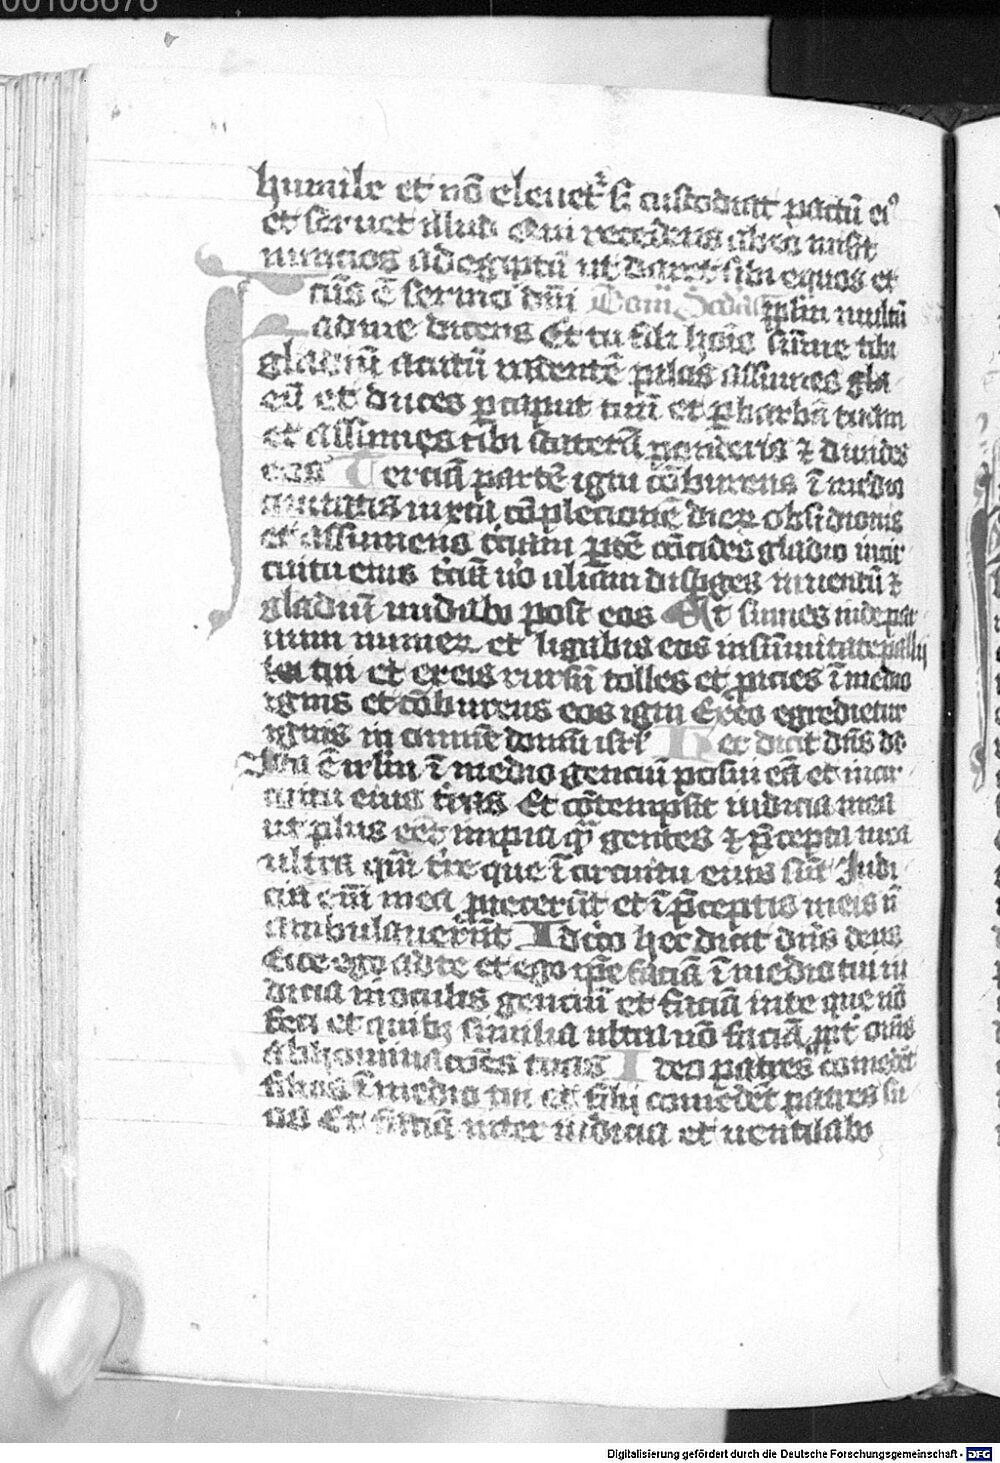 00108676
humile et nō eleuet᷑ sꝫ custodiat pactū eiꝰ
et seruet illud Qui recedens ab eo misit
nuncios ad egiptū ut daret sibi equos et
ctūs ē sermo dn̄i plm̄ multū
ad me dicens Et tu fili hoīs sūme tibi
gladiū acutū radentē pilos assumes gla
eū et duces ꝑ caput tuū et ꝑ barbā tuam
et assumes tibi staterā ponderis ⁊ diuides
eos Terciā partē igni cōbures ī medio
ciuitatis iuxta cōplecionē dierꝝ obsidionis
et assumens tciam ꝑtē cōcides gladio in cir
cuitu eius tciā ū̓o aliam disꝑges in uentū ⁊
gladiū nudabo post eos Et sumes inde par
uum numerꝝ et ligabis eos in sūmitate pallij
tui et ex eis rursū tolles et ꝓicies ī medio
ignis et cōbures eos igni Ex eo egredietur
ignis in omnē domū isrl̓ Hec dicit dn̄s de
Ista ē irlm̄ ī medio genciū posui eā et in cir
cuitu eius t̓ras Et cōtempsit iudicia mea
ut plus eēt impia qͣ̄ gentes ⁊ p̄cepta mea
ultra qm̄ t̓re que ī circuitu eius sūt Judi
cia em̄ mea ꝓiecerūt et ī p̄ceptis meis n̄
ambulauerūt Idcō hec dicit dn̄s deus
Ecce ego ad te et ego ip̄e faciā ī medio tui iu
dicia in oculis genciū et faciā in te que nō
feci et quibꝫ similia ultra nō faciā ꝓpt̓ om̄s
abhominacōes tuas Ideo patres comedēt
filios ī medio tui et filij comedēt patres su
os Et faciā in te iudicia et uentilabo
Digitalisierung gefördert durch die Deutsche Forschungsgemeinschaft - DFG